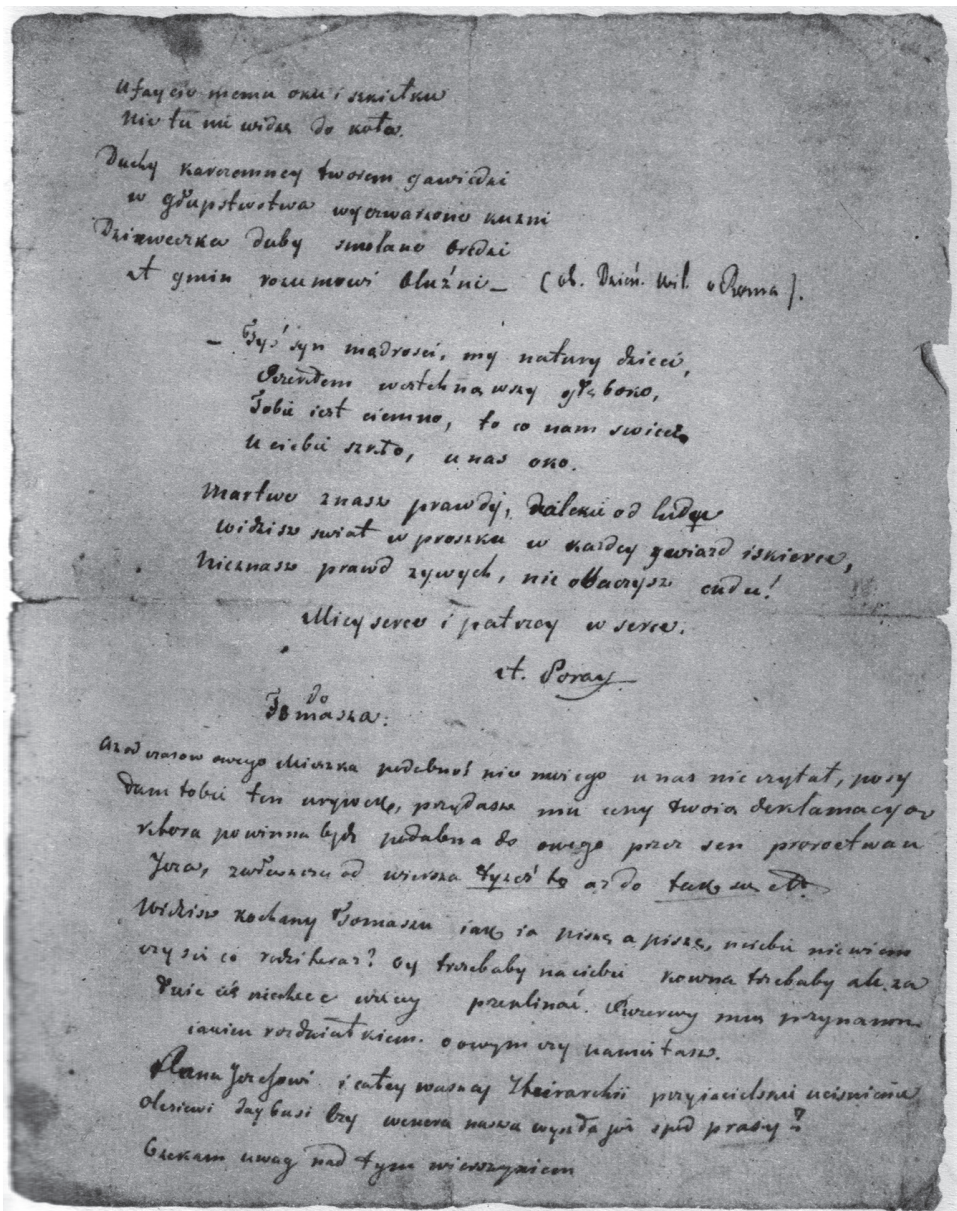 Ufaycie memu oku i szkiełku
Nic tu nie widzę do koła.
Duchy karczemney tworem gawiedzi
w głupstwstwa wywarzone kuzni
Dzieweczka duby smolane bredzi
A gmin rozumowi bluźni – (ob. Dzień. Wil. o Roma).
– Tyś syn mądrosci, my natury dzieci,
Rzekłem westchnąwszy głęboko,
Tobie iest ciemno, to co nam swieci
U ciebie szkło, u nas oko.
Martwe znasz prawdy, dalekie od ludu
Widzisz swiat w proszku w każdey gwiazd iskierce,
Nieznasz prawd zywych, nie obaczysz cudu!
Miey serce i patrzay w serce.
A. Poray
do
Tomasza.
Az od czasow owego Mieszka podobnoś nic moiego u nas nie czytał, posy
łam tobie ten urywek, przydasz mu ceny twoią deklamacyą
ktora powinna bydź podobna do owego przez sen proroctwa
Jeża, zwłaszcza od wiersza až do
Widzisz kochany Tomaszu iak ia piszę a piszę, u ciebie niewiem
czy się co rodzi teraz? Oy trzebaby na ciebie Kowna trzebaby ale za
niechcę więcey przeklinać.
iakim rozdziałkiem. o owym czy pamiętasz.
Panu Jozefowi i całey waszey Hierarchii przyiacielskie uciśnienie
Olesiewi day busi Czy wenera nasza wyszła już spod prasy?
Czekam uwag nad tym wierszykiem